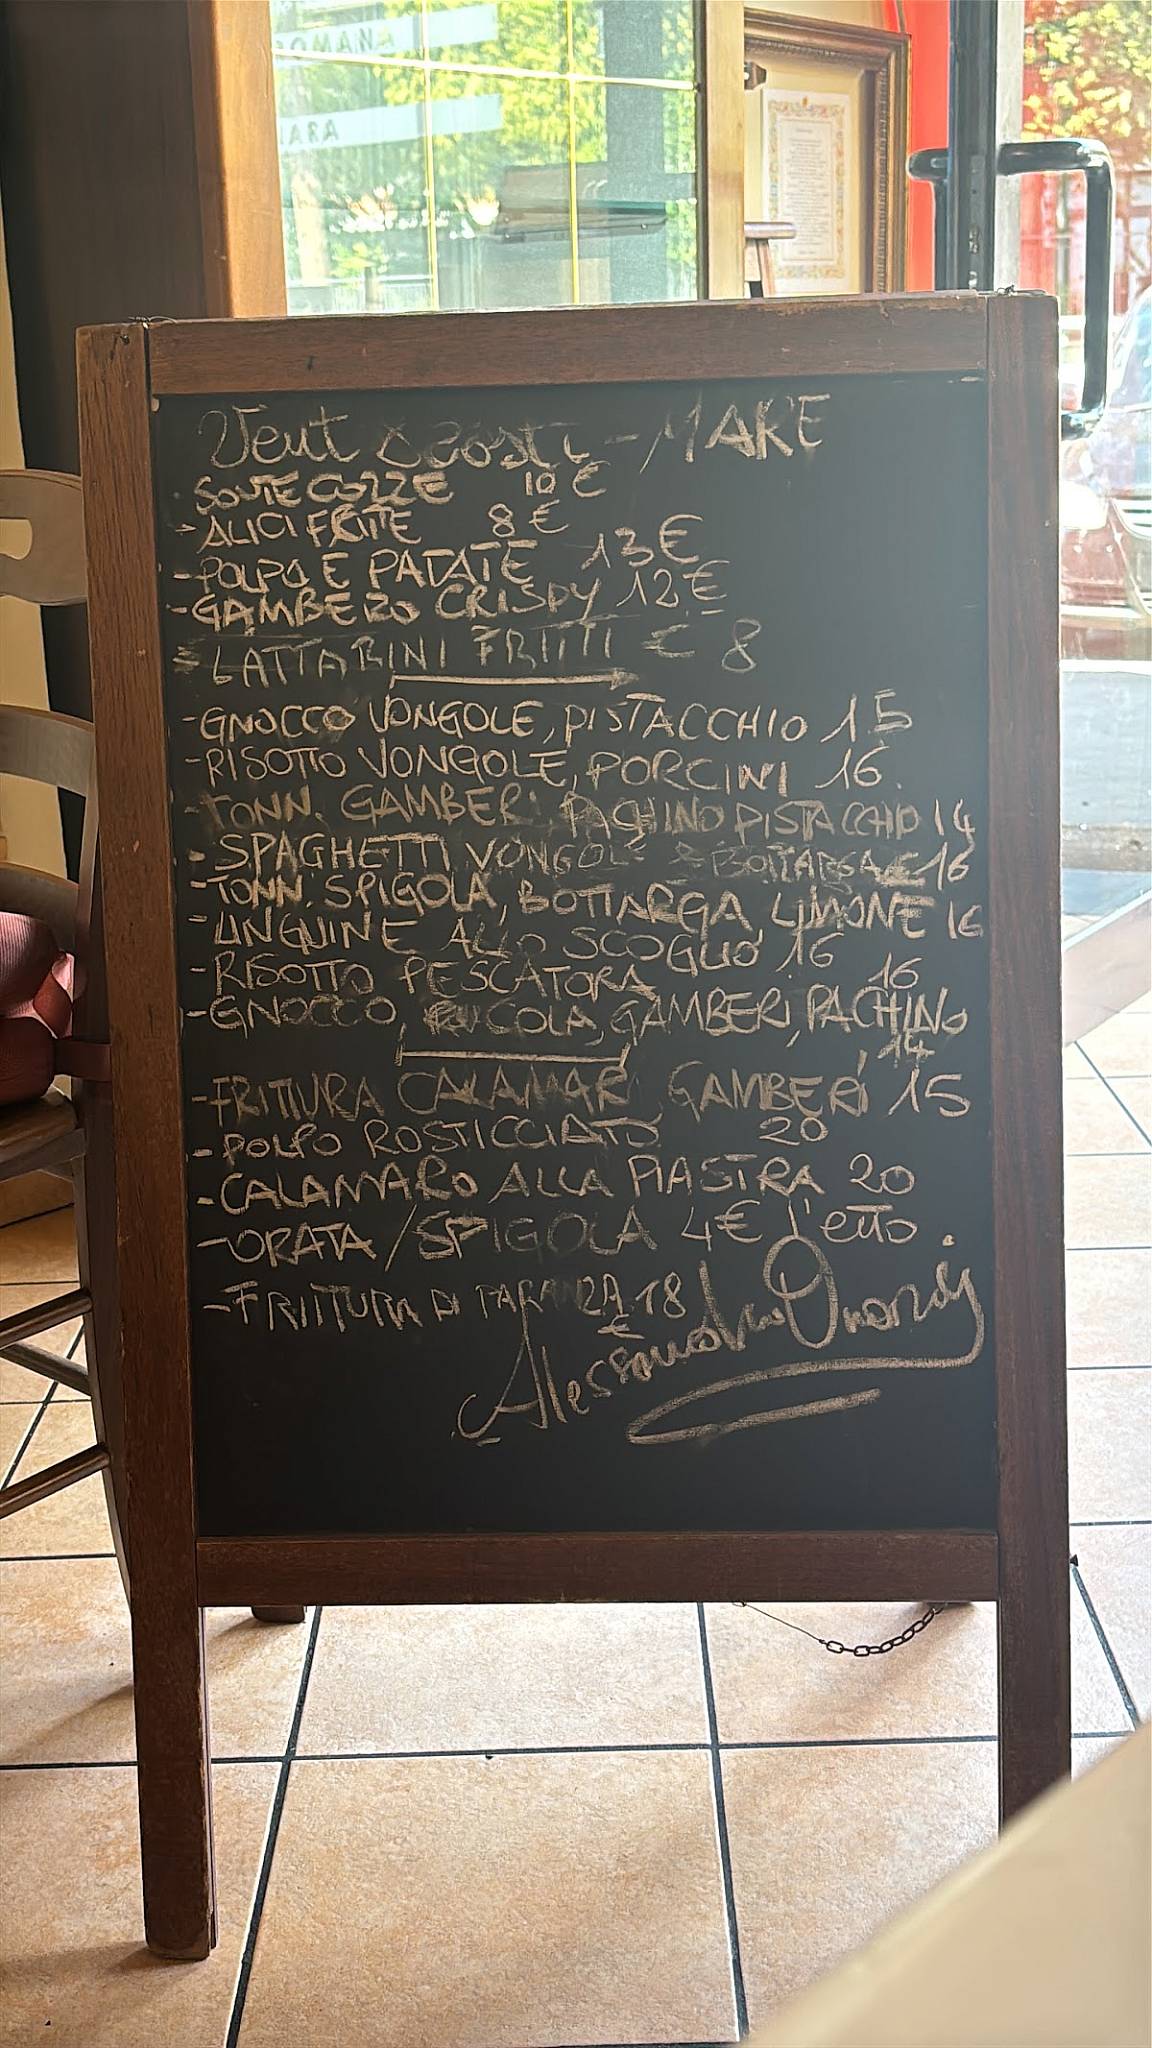 Vent Agosti - MARE
- SOUTE COZZE 10 €
- ALICI FRITE 8 €
- POLPO E PATATE 13 €
- GAMBERO CRISPY 12 €
- LATTARINI FRITTI € 8
- GNOCCO VONGOLE, PISTACCHIO 15
- RISOTTO VONGOLE, PORCINI 16
- TONN. GAMBERI PACHINO PISTACCHIO 14
- SPAGHETTI VONGOLE E BOTTARGA € 16
- TONN. SPIGOLA, BOTTARGA, LIMONE 16
- LINGUINE ALLO SCOGLIO 16
- RISOTTO PESCATORA 16
- GNOCCO, RUCOLA, GAMBERI, PACHINO
14
- FRITTURA CALAMARI GAMBERI 15
- POLPO ROSTICCIATO 20
- CALAMARO ALLA PIASTRA 20
- ORATA / SPIGOLA 4€ l'etto.
- FRITTURA DI PARANZA 18
€
Alessandro